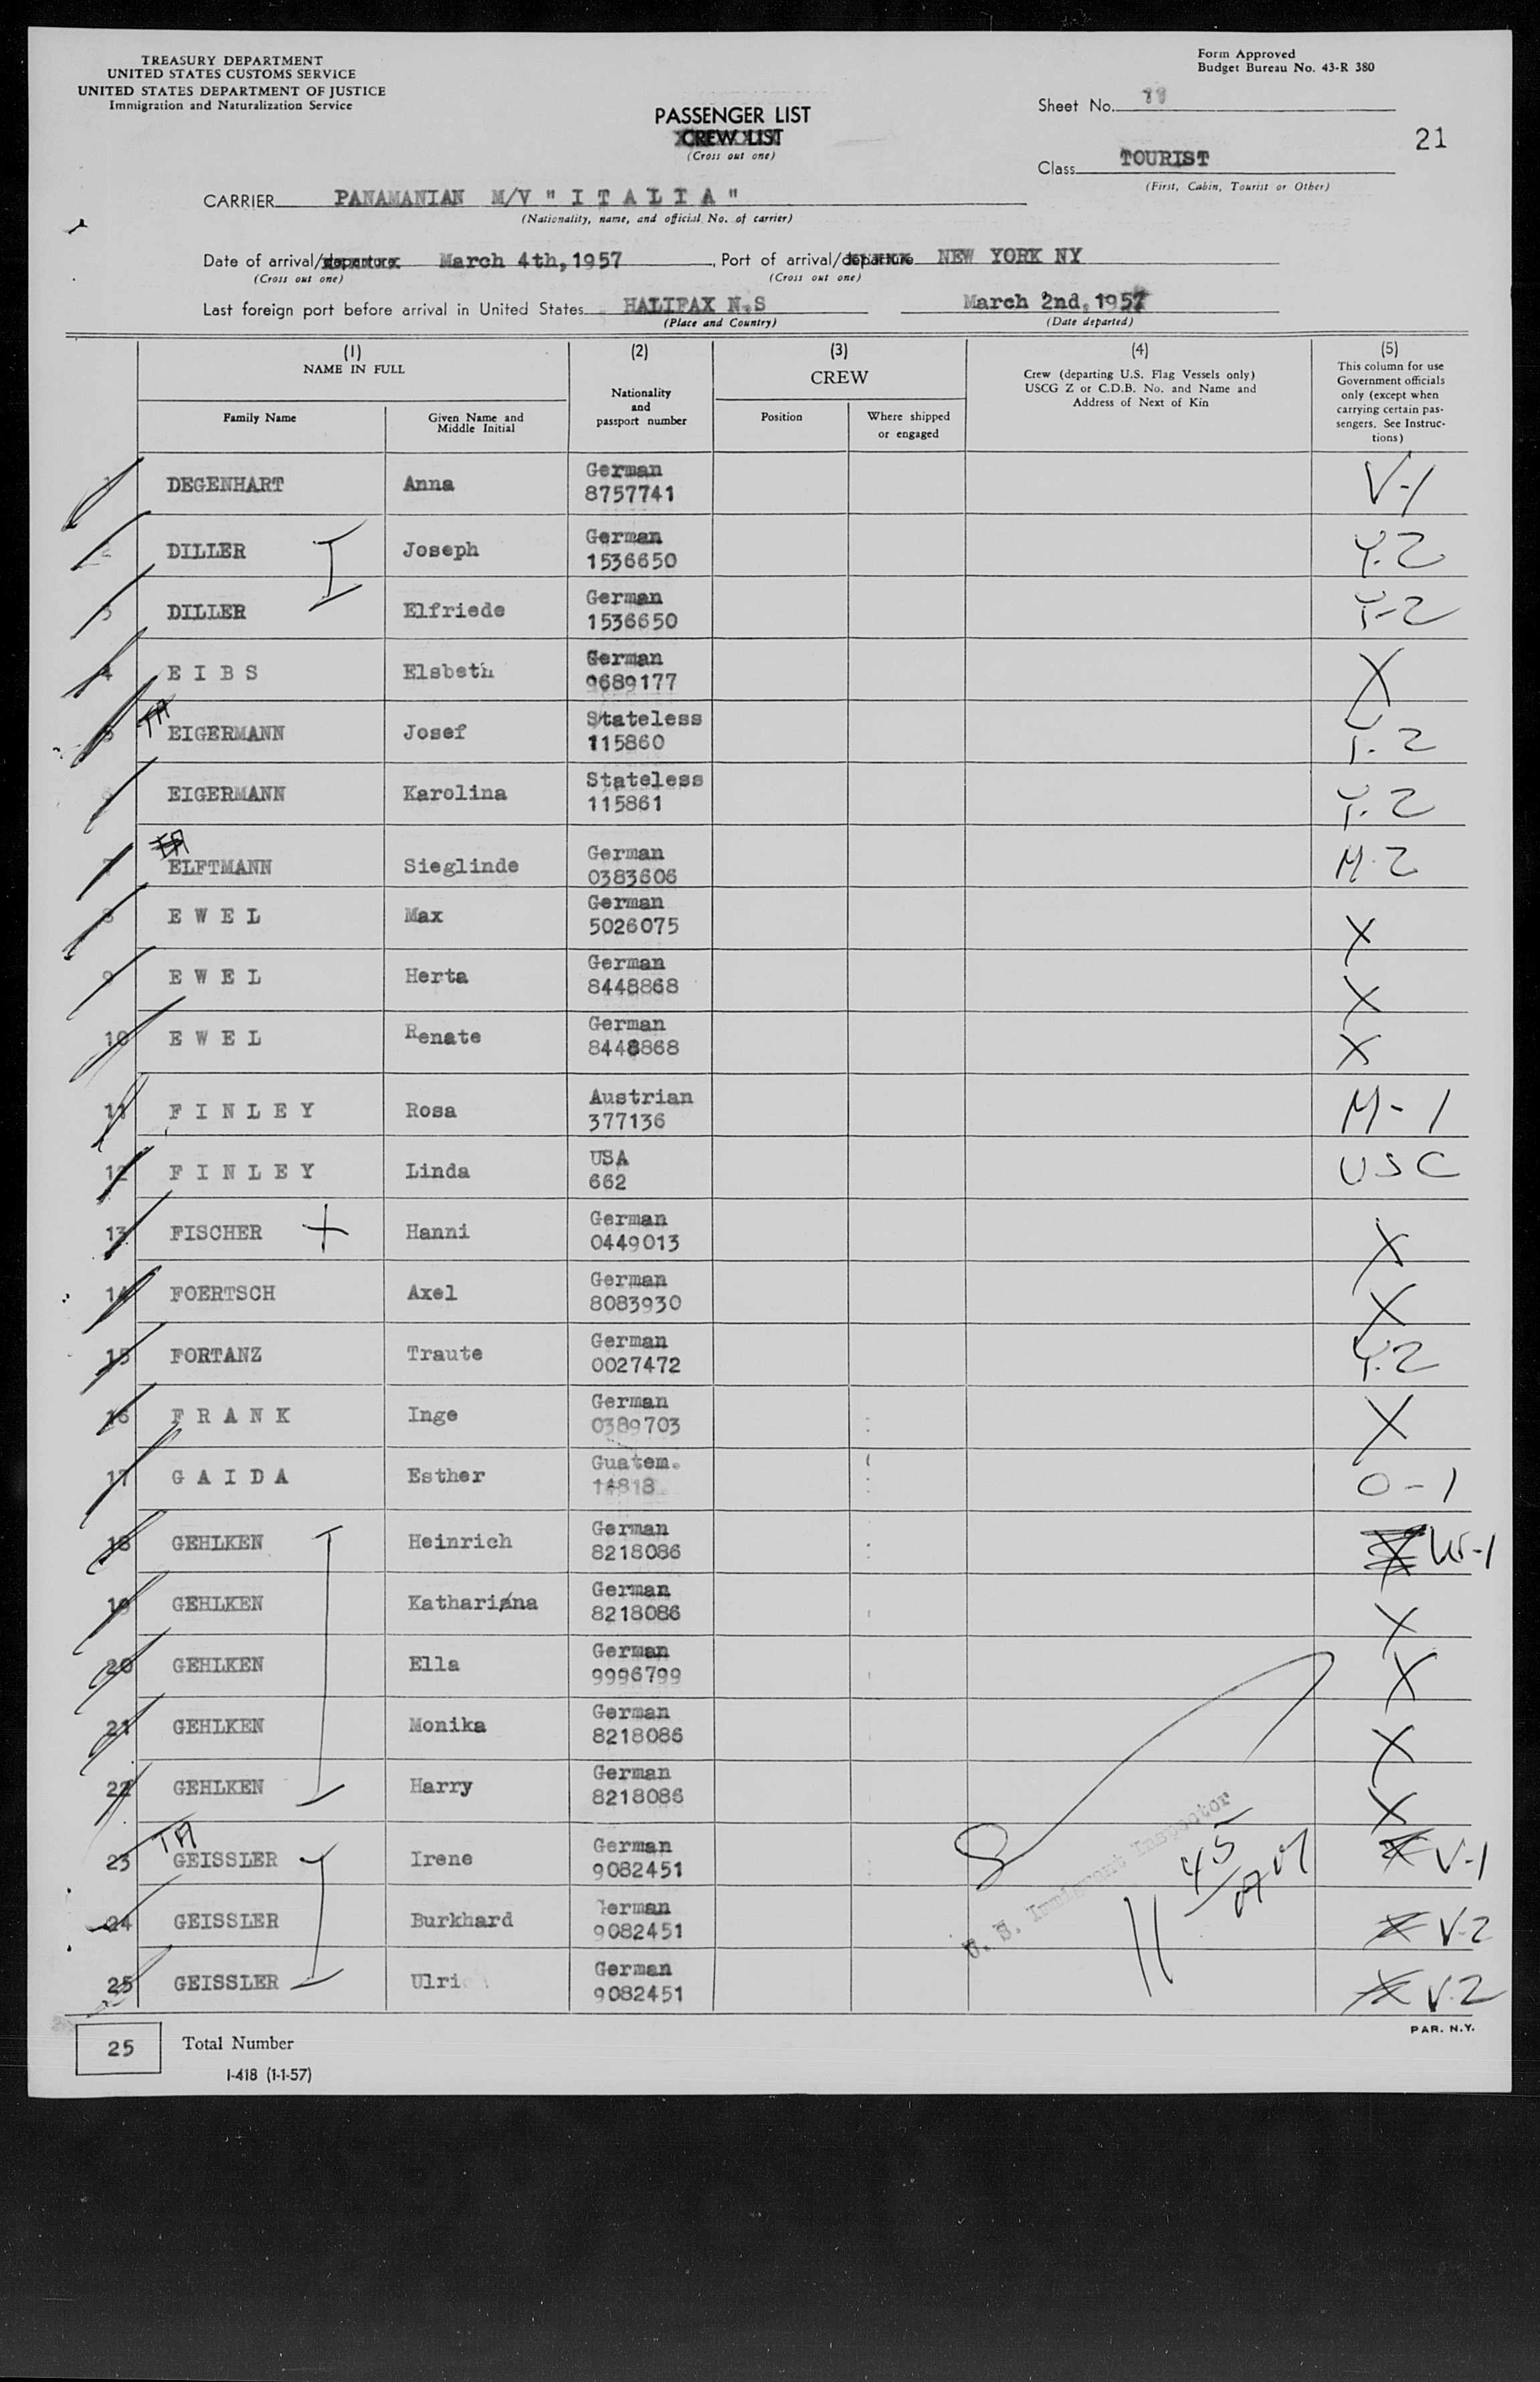 TREASURY DEPARTMENT
UNITED STATES CUSTOMS SERVICE
UNITED STATES DEPARTMENT OF JUSTICE
Immigration and Naturalization Service
Form Approved
Budget Bureau No. 43-R 380
Sheet No.
21
PASSENGER LIST
CREW LIST
(Cross out one)
Class TOURIST
(First, Cabin, Tourist or Other)
CARRIER PANAMANIAN M/V " I T A L I A "
(Nationality, name, and official No. of carrier)
Date of arrival/departure March 4th,1957, Port of arrival/departure NEW YORK NY
(Cross out one) (Cross out one)
Last foreign port before arrival in United States HALIFAX N.S March 2nd, 1957
(Place and Country) (Date departed)
(1) NAME IN FULL
Family Name
Given Name and Middle Initial
(2)
Nationality and passport number
(3) CREW
Position
Where shipped or engaged
(4)
Crew (departing U.S. Flag Vessels only)
USCG Z or C.D.B. No. and Name and
Address of Next of Kin
(5)
This column for use
Government officials
only (except when
carrying certain pas-
sengers. See Instruc-
tions)
1 DEGENHART Anna German 8757741 V-1
2 DILLER Joseph German 1536650 Y-2
3 DILLER Elfriede German 1536650 Y-2
4 E I B S Elsbeth German 9689177 X
5 TA EIGERMANN Josef Stateless 115860 Y-2
6 EIGERMANN Karolina Stateless 115861 Y-2
7 ELFTMANN Sieglinde German 0383606 M-2
8 E W E L Max German 5026075 X
9 E W E L Herta German 8448868 X
10 E W E L Renate German 8448868 X
11 F I N L E Y Rosa Austrian 377136 M-1
12 F I N L E Y Linda USA 662 USC
13 FISCHER + Hanni German 0449013 X
14 FOERTSCH Axel German 8083930 X
15 FORTANZ Traute German 0027472 Y-2
16 F R A N K Inge German 0389703 X
17 G A I D A Esther Guatem. 14818 O-1
18 GEHLKEN Heinrich German 8218086
19 GEHLKEN Katharina German 8218086 X
20 GEHLKEN Ella German 9996799 X
21 GEHLKEN Monika German 8218086 X
22 GEHLKEN Harry German 8218086 X
23 TA GEISSLER Irene German 9082451 X V-1
24 GEISSLER Burkhard German 9082451 X V-2
25 GEISSLER Ulri German 9082451 X V-2
U. S. Immigrant Inspector
11 45
25 Total Number
I-418 (1-1-57)
PAR. N.Y.